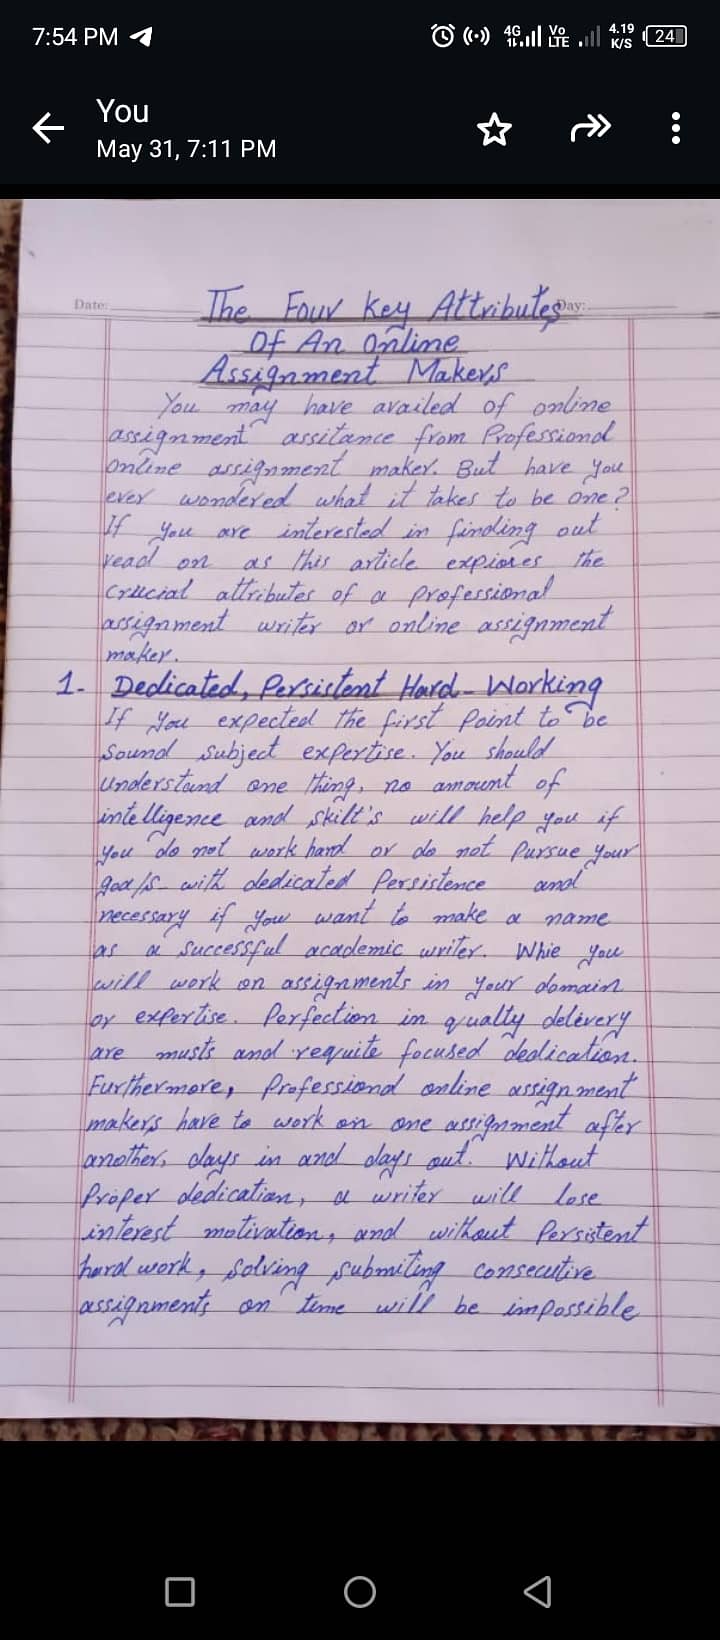 7:54 PM
4G
Vo LTE
4.19 K/S
24
You
May 31, 7:11 PM
Date:
Day:
The Four Key Attributes
Of An Online
Assignment Makers
You may have availed of online
assignment assitance from Professional
online assignment maker. But have you
ever wondered what it takes to be one?
If you are interested in finding out
read on as this article expiores the
crucial attributes of a professional
assignment writer or online assignment
maker.
1. Dedicated, Persistent Hard-Working
If you expected the first Point to be
Sound subject expertise. You should
Understand one thing, no amount of
intelligence and skilt's will help you if
you do not work hard or do not Pursue your
goa/s with dedicated Persistence and
necessary if you want to make a name
as a successful academic writer. Whie you
will work on assignments in your domain
or expertise. Perfection in qualty delivery
are musts and requite focused dedication.
Furthermore, Professional online assignment
makers have to work on one assignment after
another, days in and days out. Without
Proper dedication, a writer will lose
interest motivation, and without Persistent
hard work, Solving submiting consecutive
assignments on time will be impossible